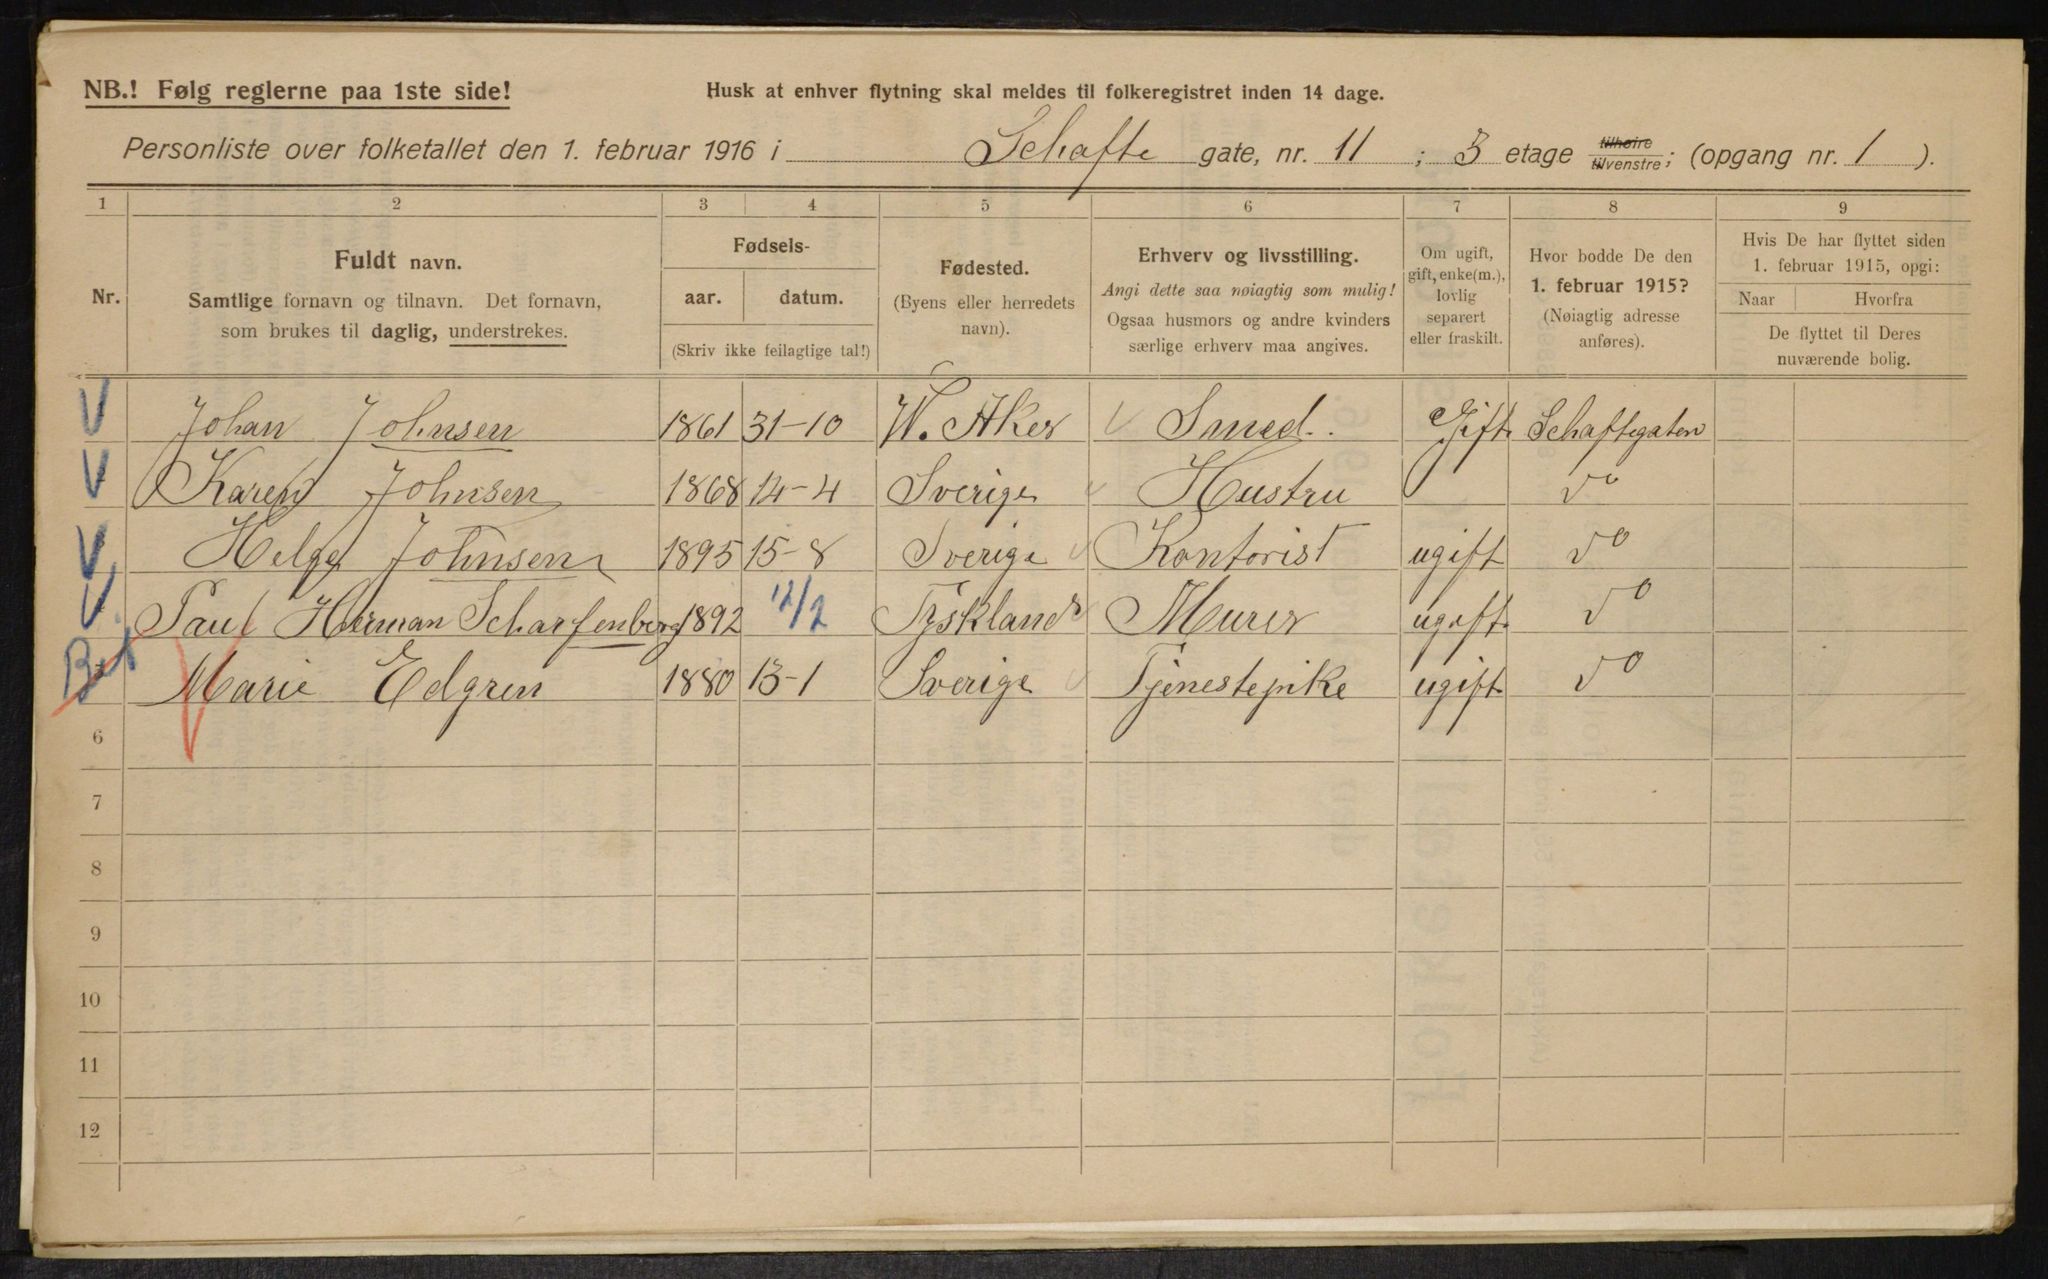 NB.! Følg reglerne paa 1ste side! Husk at enhver flytning skal meldes til folkeregistret inden 14 dage.
Personliste over folketallet den 1. februar 1916 i Schafte gate, nr. 11 ; 3 etage tilhøire tilvenstre; (opgang nr. 1 ).
1 2 3 4 5 6 7 8 9
Nr.
Fuldt navn.
Samtlige fornavn og tilnavn. Det fornavn,
som brukes til daglig, understrekes.
Fødsels-
aar. datum.
(Skriv ikke feilagtige tal!)
Fødested.
(Byens eller herredets
navn).
Erhverv og livsstilling.
Angi dette saa nøiagtig som mulig!
Ogsaa husmors og andre kvinders
særlige erhverv maa angives.
Om ugift,
gift, enke(m.),
lovlig
separert
eller fraskilt.
Hvor bodde De den
1. februar 1915?
(Nøiagtig adresse
anføres).
Hvis De har flyttet siden
1. februar 1915, opgi:
Naar Hvorfra
De flyttet til Deres
nuværende bolig.
Johan Johnsen 1861 31-10 W. Aker Smed. Gift Schaftegaten
Karen Johnsen 1868 14-4 Sverige Hustru do
Helge Johnsen 1895 15-8 Sverige Kontorist ugift do
Paul Herman Scharfenberg 1892 12/2 Tyskland Murer ugift do
Marie Edgren 1880 13-1 Sverige Tjenestepike ugift do
6
7
8
9
10
11
12